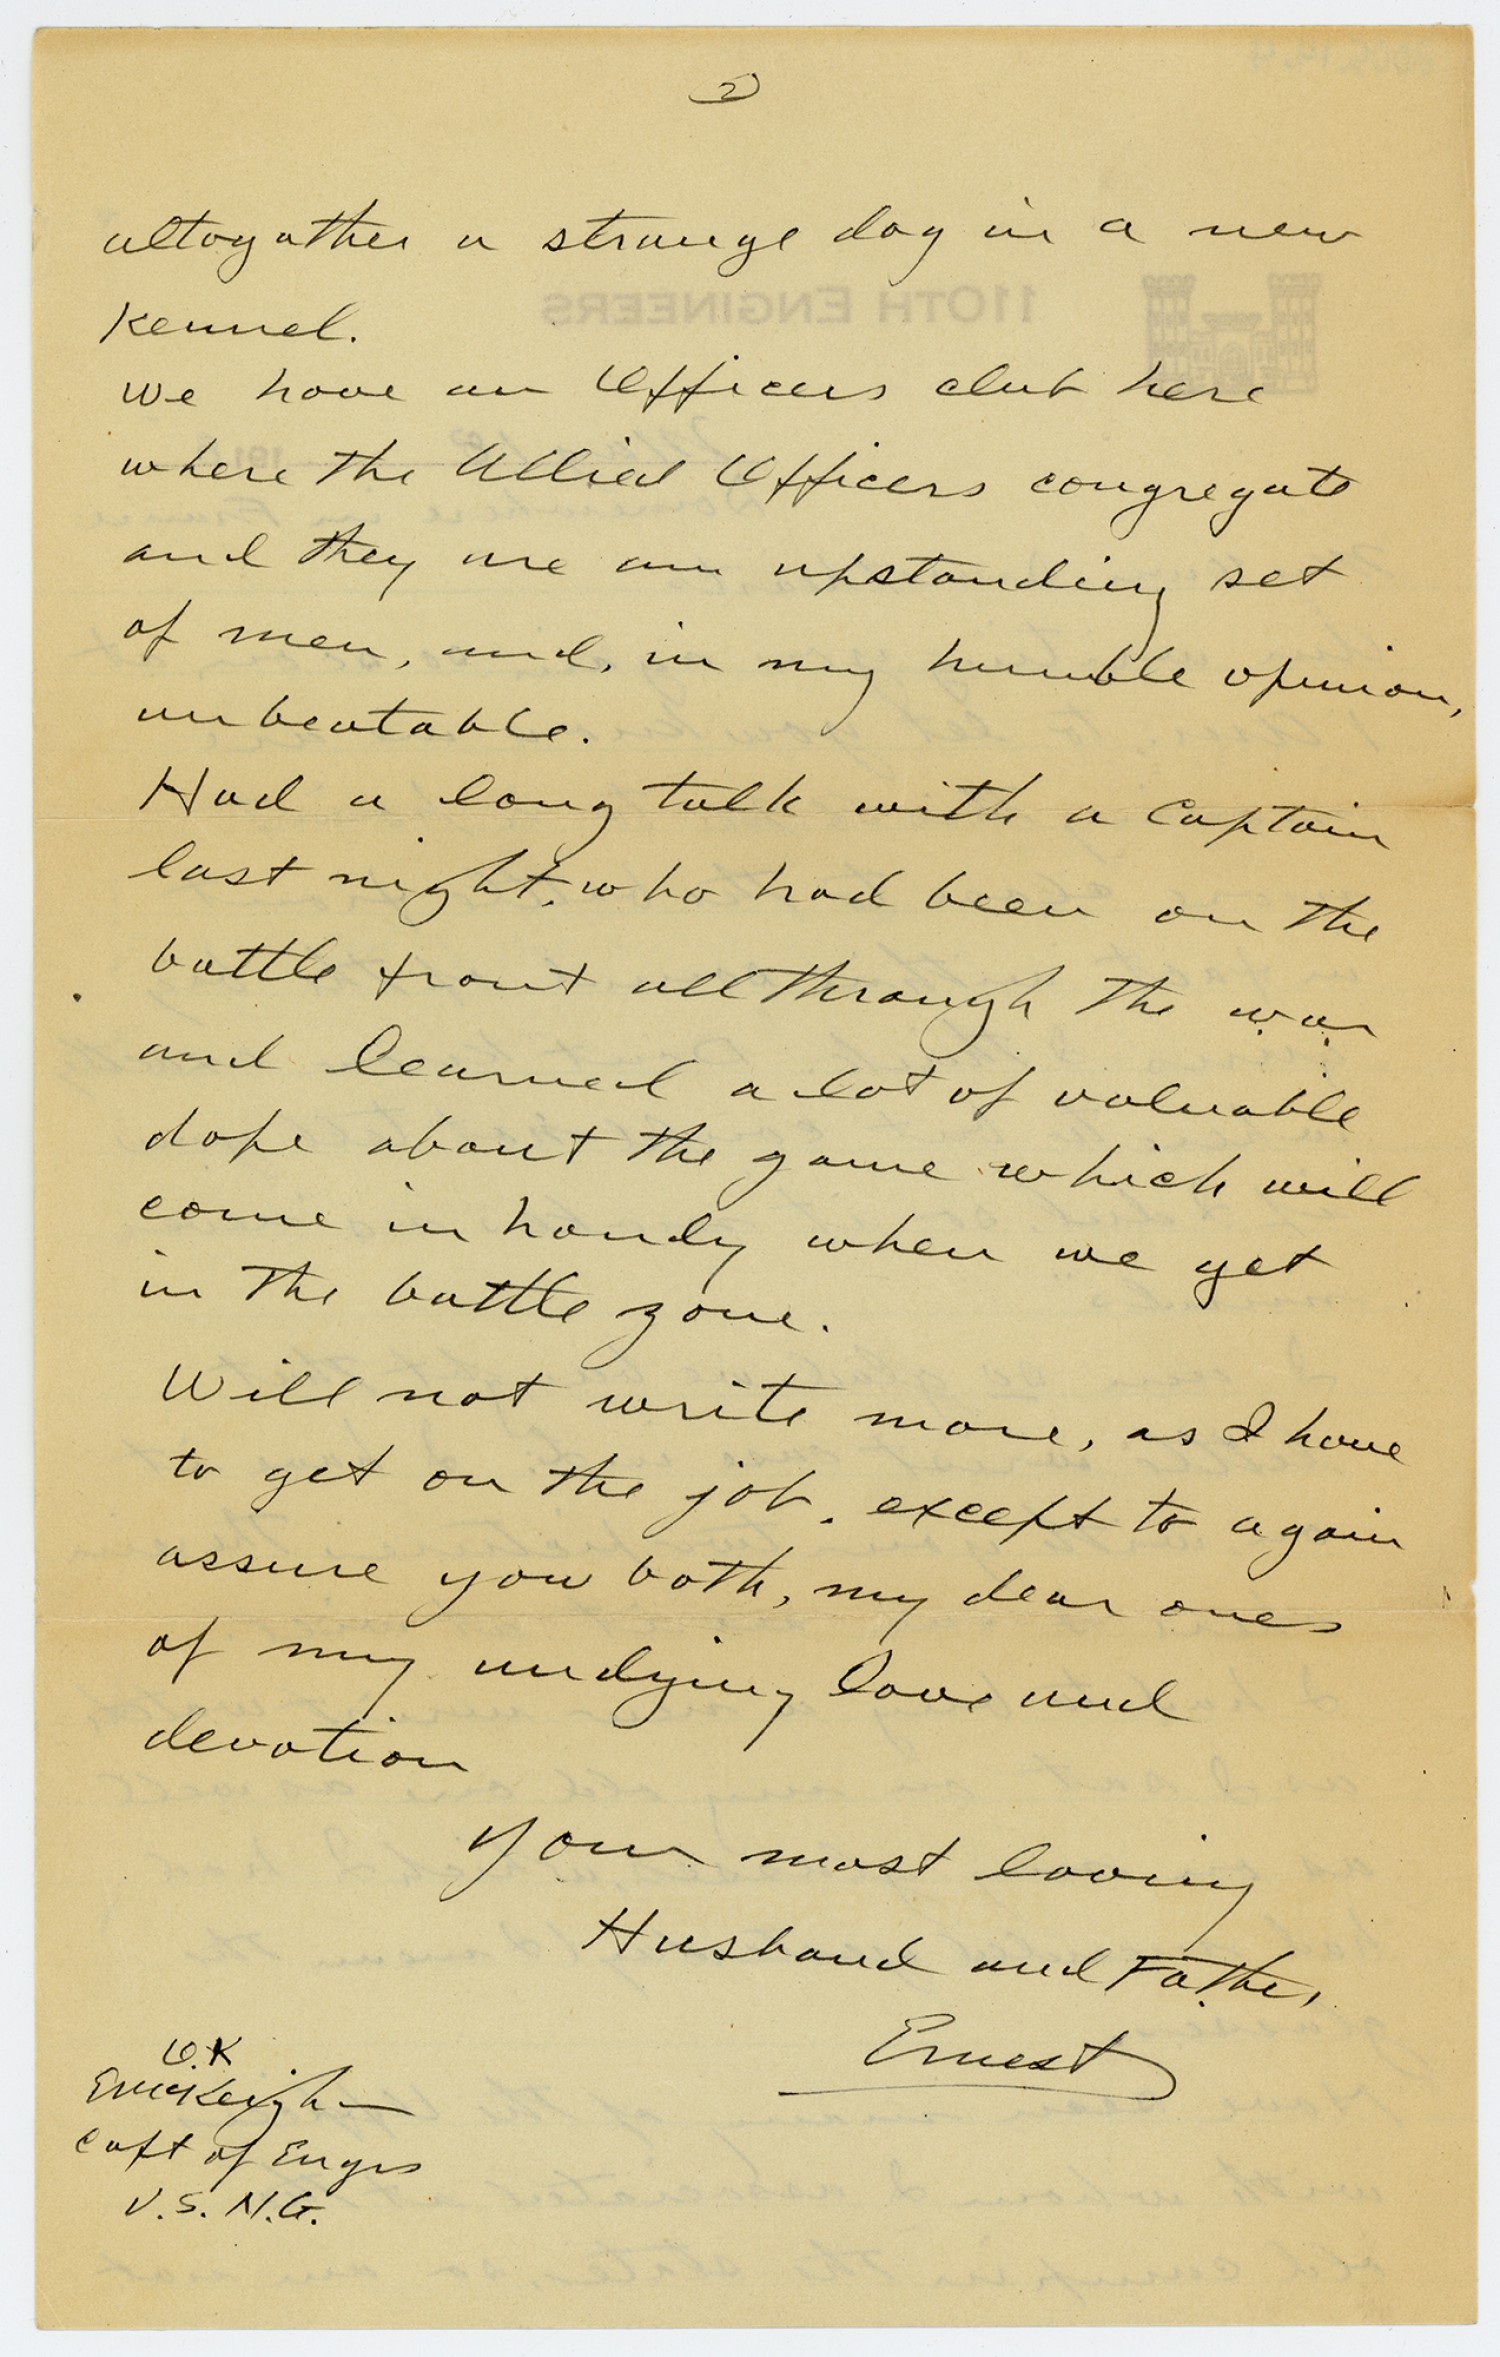 2
altogather a strange dog in a new
kennel.
110TH ENGINEERS
We have an Officers club here
where the Allied Officers congregate
and they are an upstanding set
of men, and, in my humble opinion,
unbeatable.
Had a long talk with a Captain
last night, who had been on the
battle front all through the war
and learned a lot of valuable
dope about the game which will
come in handy when we get
in the battle zone.
Will not write more, as I have
to get on the job, except to again
assure you both, my dear ones
of my undying love and
devotion
Your most loving
Husband and Father,
Ernest
O.K
EMcKeighan
Capt of Engrs
U.S.N.G.